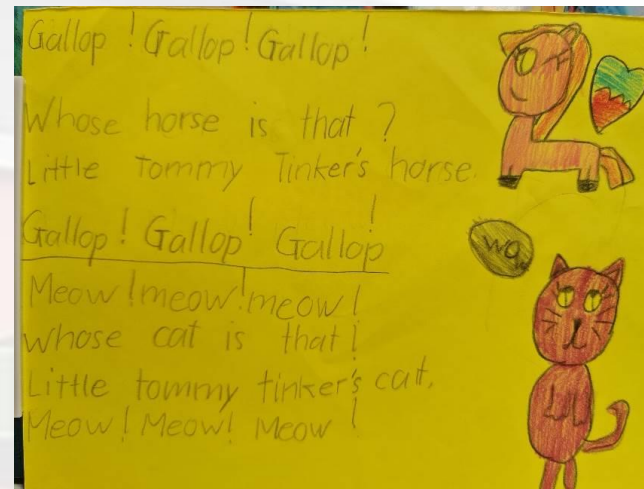 Gallop ! Gallop ! Gallop !
Whose horse is that ?
Little Tommy Tinker's horse.
Gallop ! Gallop ! Gallop !
Meow ! meow ! meow !
whose cat is that !
Little tommy tinker's cat.
Meow ! Meow ! Meow !
wo